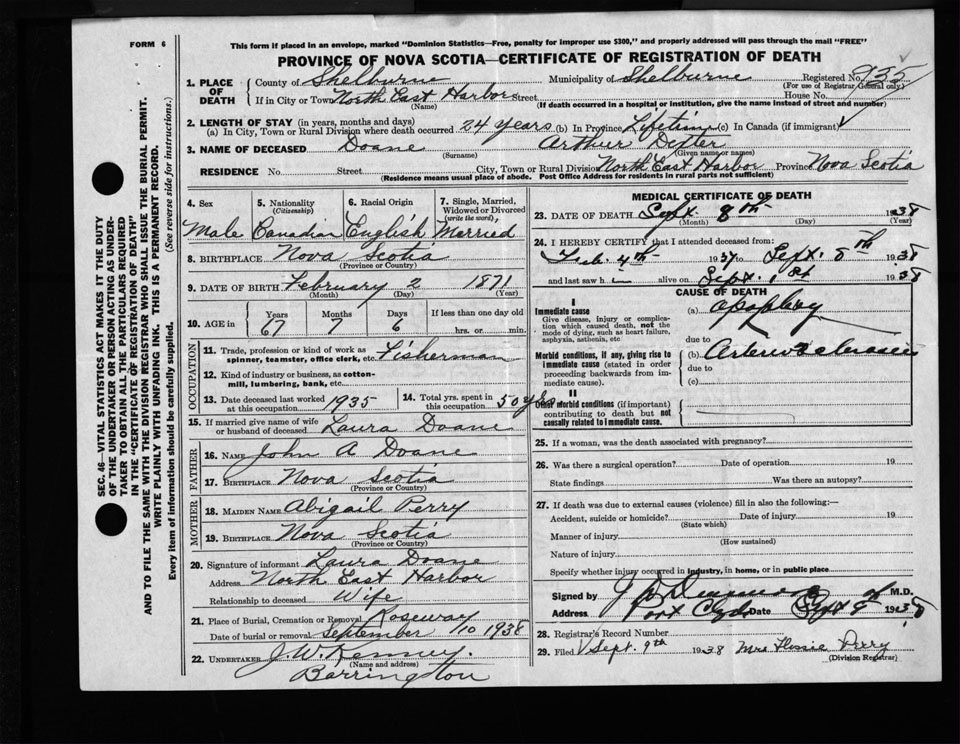 FORM 6
This form if placed in an envelope, marked "Dominion Statistics—Free, penalty for improper use $300," and properly addressed will pass through the mail "FREE"
PROVINCE OF NOVA SCOTIA—CERTIFICATE OF REGISTRATION OF DEATH
SEC. 46—VITAL STATISTICS ACT MAKES IT THE DUTY
OF THE UNDERTAKER OR PERSON ACTING AS UNDER-
TAKER TO OBTAIN ALL THE PARTICULARS REQUIRED
IN THE "CERTIFICATE OF REGISTRATION OF DEATH"
AND TO FILE THE SAME WITH THE DIVISION REGISTRAR WHO SHALL ISSUE THE BURIAL PERMIT.
WRITE PLAINLY WITH UNFADING INK. THIS IS A PERMANENT RECORD.
Every item of information should be carefully supplied. (See reverse side for instructions.)
1. PLACE OF DEATH
County of Shelburne Municipality of Shelburne Registered No. 935
(For use of Registrar General only)
If in City or Town North East Harbor Street House No.
(Name) (If death occurred in a hospital or institution, give the name instead of street and number)
2. LENGTH OF STAY (in years, months and days)
(a) In City, Town or Rural Division where death occurred 24 years (b) In Province Lifetime (c) In Canada (if immigrant)
3. NAME OF DECEASED Doane Arthur Dexter
(Surname) (Given name or names)
RESIDENCE No. Street City, Town or Rural Division North East Harbor Province Nova Scotia
(Residence means usual place of abode. Post Office Address for residents in rural parts not sufficient)
4. Sex 5. Nationality (Citizenship) 6. Racial Origin 7. Single, Married, Widowed or Divorced (write the word)
Male Canadian English Married
8. BIRTHPLACE Nova Scotia
(Province or Country)
9. DATE OF BIRTH February 2 1871
(Month) (Day) (Year)
10. AGE in Years Months Days If less than one day old
67 7 6 hrs. or min.
OCCUPATION
11. Trade, profession or kind of work as spinner, teamster, office clerk, etc. Fisherman
12. Kind of industry or business, as cotton-mill, lumbering, bank, etc.
13. Date deceased last worked at this occupation 1935 14. Total yrs. spent in this occupation 50 yrs
15. If married give name of wife or husband of deceased Laura Doane
FATHER
16. NAME John A Doane
17. BIRTHPLACE Nova Scotia
(Province or Country)
MOTHER
18. MAIDEN NAME Abigail Perry
19. BIRTHPLACE Nova Scotia
(Province or Country)
20. Signature of informant Laura Doane
Address North East Harbor
Relationship to deceased Wife
21. Place of Burial, Cremation or Removal Roseway
Date of burial or removal September 10 1938
22. UNDERTAKER J.W. Kenney.
(Name and address)
Barrington
MEDICAL CERTIFICATE OF DEATH
23. DATE OF DEATH Sept. 8th 1938
(Month) (Day) (Year)
24. I HEREBY CERTIFY that I attended deceased from:
Feb. 4th 1937 to Sept. 8th 1938
and last saw h i alive on Sept. 1st 1938
CAUSE OF DEATH
I
Immediate cause
Give disease, injury or complication which caused death, not the mode of dying, such as heart failure, asphyxia, asthenia, etc
(a) apoplexy
due to
Morbid conditions, if any, giving rise to immediate cause (stated in order proceeding backwards from immediate cause).
(b)
due to
(c)
II
Other morbid conditions (if important) contributing to death but not causally related to immediate cause.
25. If a woman, was the death associated with pregnancy?
26. Was there a surgical operation? Date of operation 19
State findings Was there an autopsy?
27. If death was due to external causes (violence) fill in also the following:—
Accident, suicide or homicide? Date of injury 19
(State which)
Manner of injury
(How sustained)
Nature of injury
Specify whether injury occurred in industry, in home, or in public place
Signed by M.D.
Address Port Clyde Date Sept 8 1938
28. Registrar's Record Number
29. Filed Sept. 9th 1938 Mrs Flossie Perry
(Division Registrar)